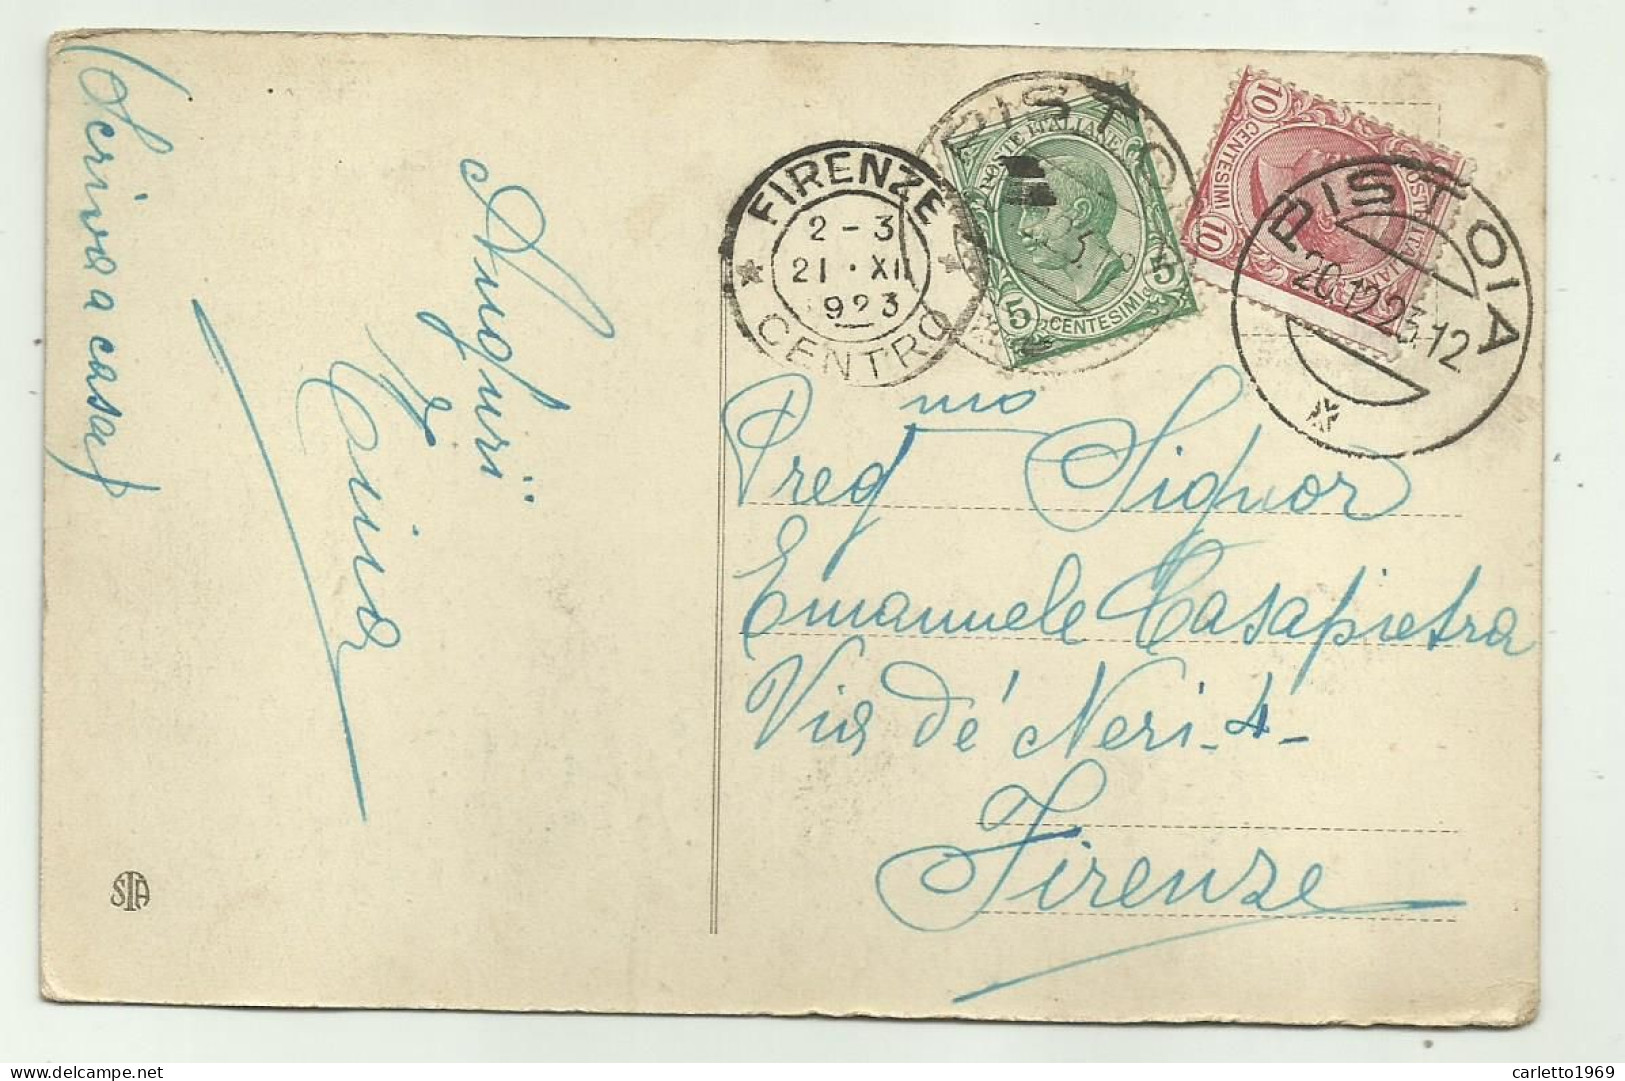 (Scriva a casa)
Auguri
Tina
STA
FIRENZE
2 - 3
21 · XII
923
CENTRO
PISTO
POSTE ITALIANE
5 5
CENTESIMI
10 CENTESIMI 10
POSTE ITALIANE
PISTOIA
20.12.23.12
Preg mo Signor
Emanuele Casapietra
Via dé Neri - 4 -
Firenze
carletto1969